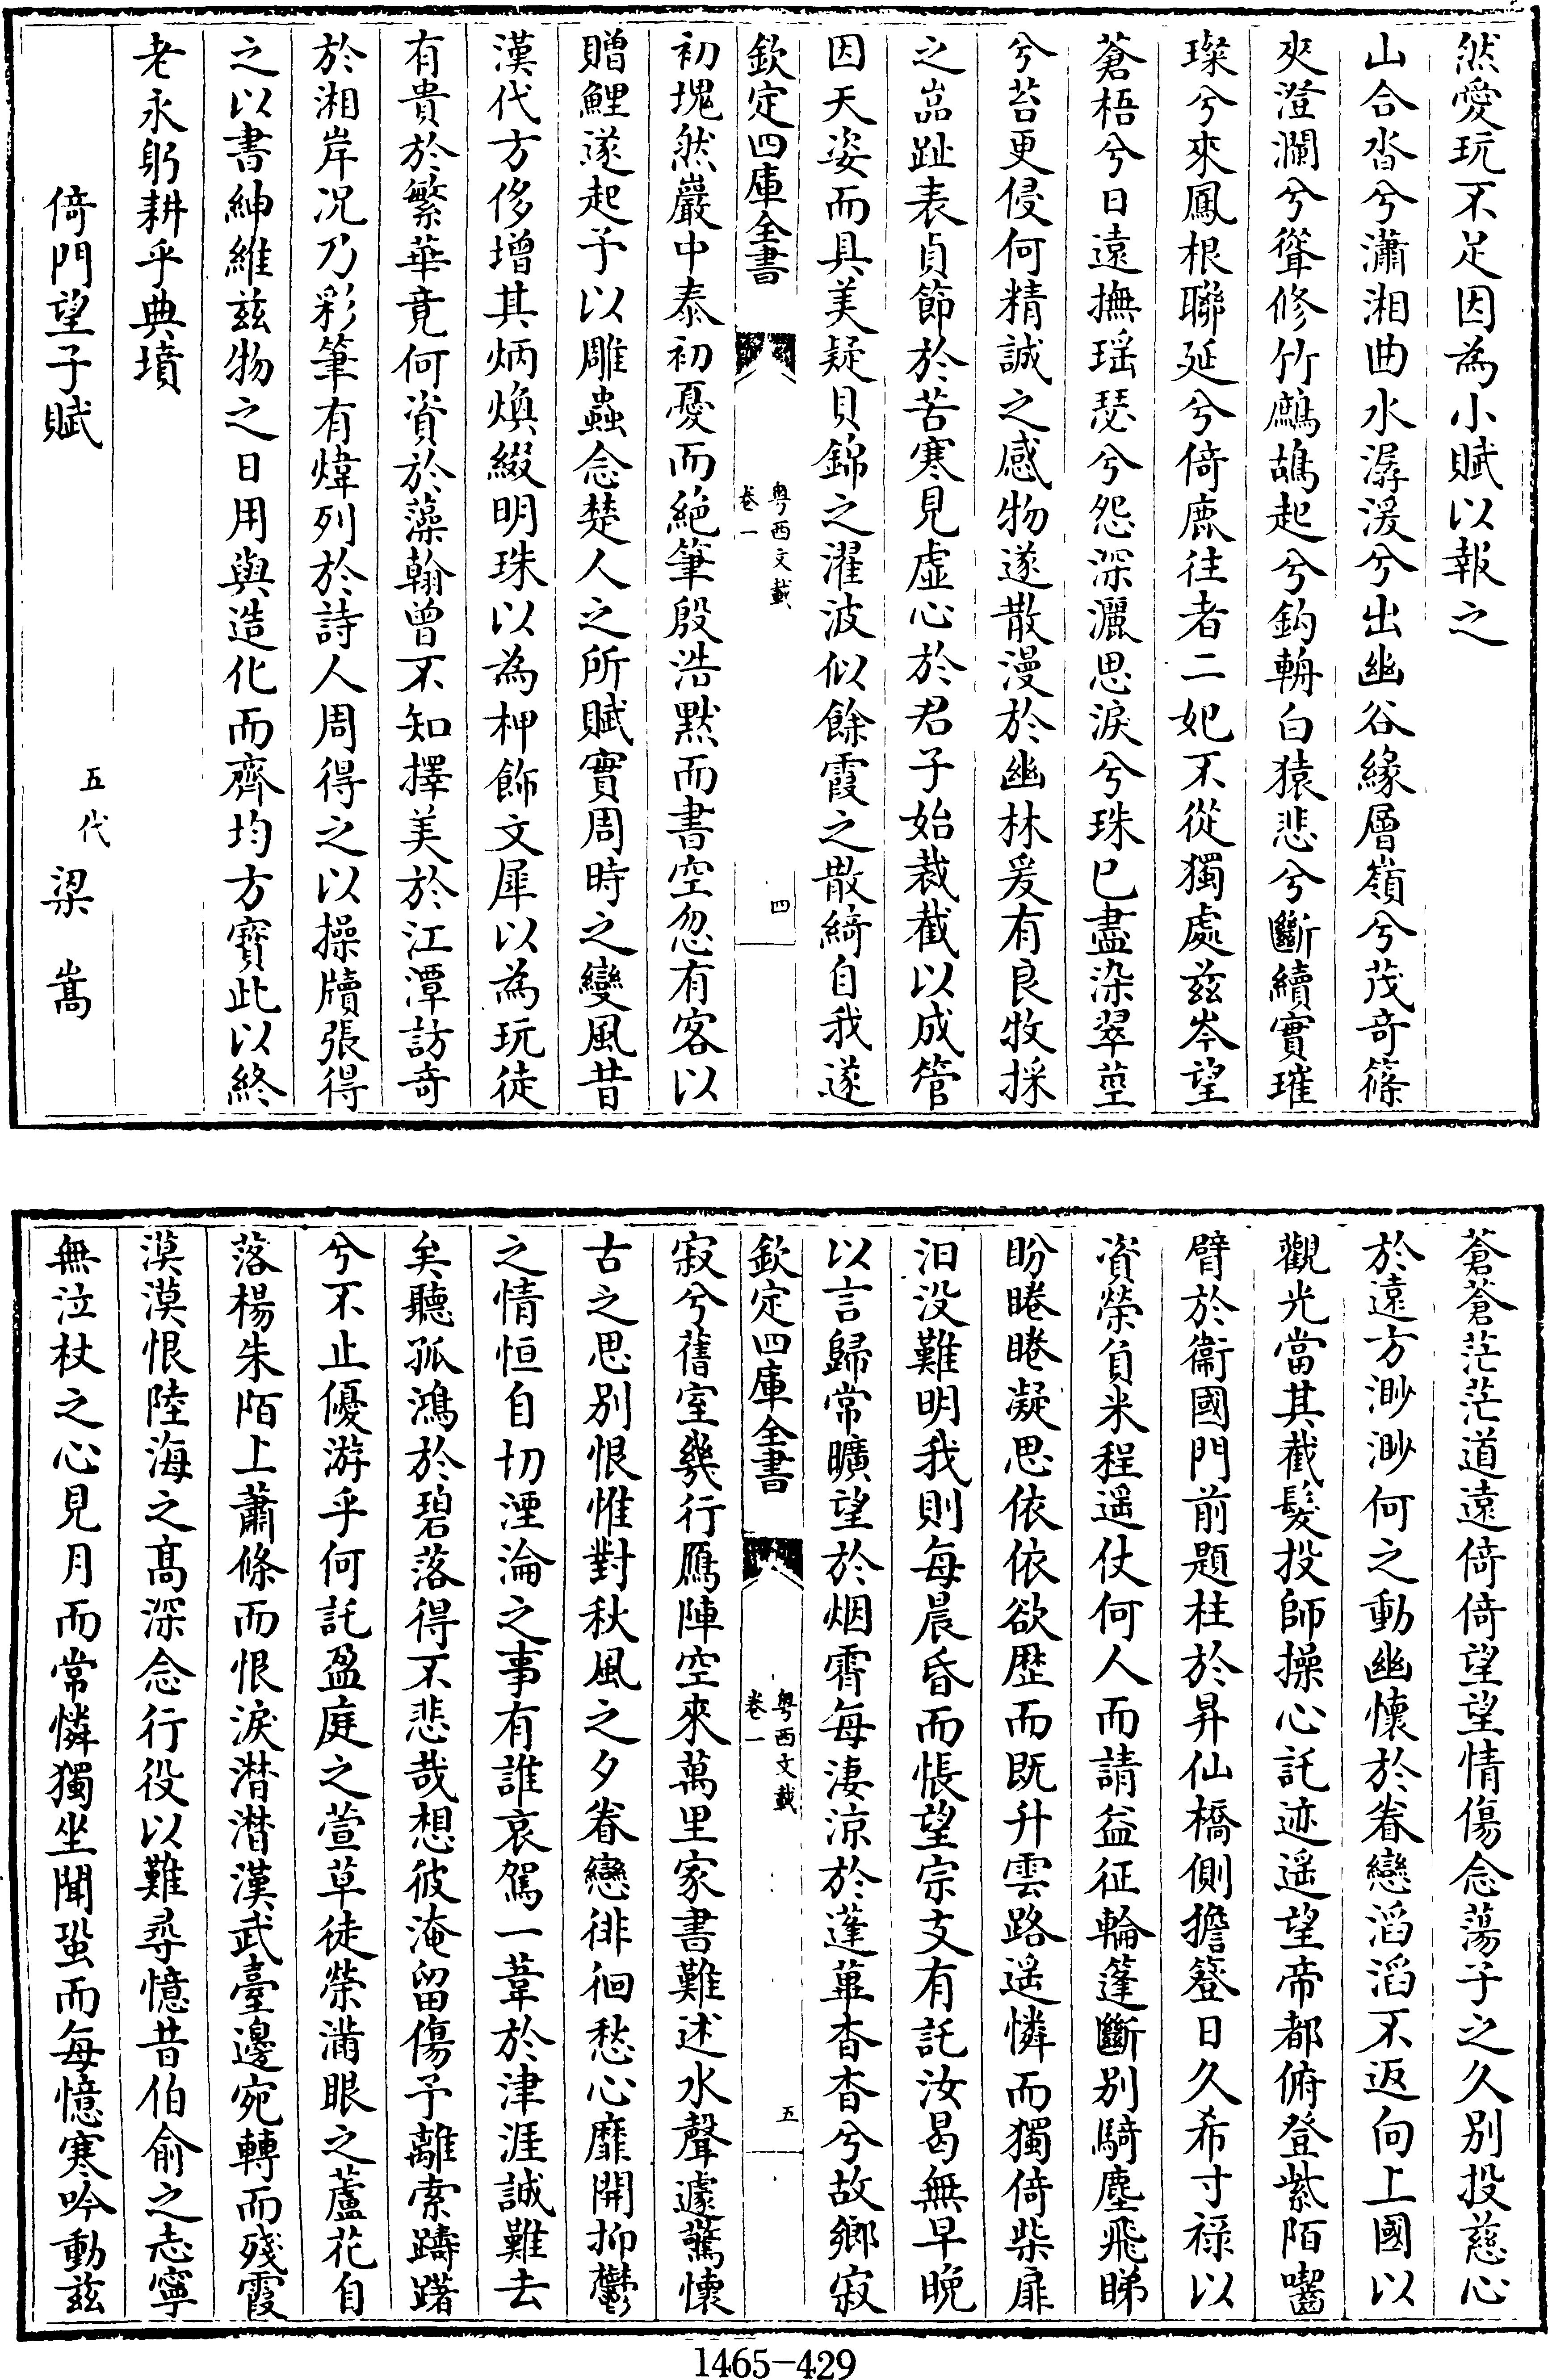 然愛玩不足因為小賦以報之
山合沓兮瀟湘曲水潺湲兮出幽谷緣層嶺兮茂奇篠
夾澄瀾兮聳修竹鷓鴣起兮鈎輈白猿悲兮斷續實璀
璨兮來鳳根聯延兮倚鹿往者二妃不從獨處兹岑望
蒼梧兮日遠撫瑶瑟兮怨深灑思淚兮珠已盡染翠莖
兮苔更侵何精誠之感物遂散漫於幽林爰有良牧採
之嵓趾表貞節於苦寒見虛心於君子始裁截以成管
因天姿而具美疑貝錦之濯波似餘霞之散綺自我遂
欽定四庫全書
粤西文載
卷一
四
初塊然巖中泰初憂而絶筆殷浩默而書空忽有客以
贈鯉遂起予以雕蟲念楚人之所賦實周時之變風昔
漢代方侈增其炳煥綴明珠以為柙飾文犀以為玩徒
有貴於繁華竟何資於藻翰曾不知擇美於江潭訪奇
於湘岸况乃彩筆有煒列於詩人周得之以操牘張得
之以書紳維兹物之日用與造化而齊均方寳此以終
老永躬耕乎典墳
倚門望子賦
五代 梁嵩
蒼蒼茫茫道遠倚倚望望情傷念蕩子之久别投慈心
於遠方渺渺何之動幽懷於眷戀滔滔不返向上國以
觀光當其截髮投師操心託迹遥望帝都俯登紫陌囓
臂於衞國門前題柱於昇仙橋側擔簦日久希寸禄以
資榮負米程遥仗何人而請益征輪篷斷别騎塵飛睇
盼睠睠凝思依依欲歴而既升雲路遥憐而獨倚柴扉
汨没難明我則每晨昏而悵望宗支有託汝曷無早晚
以言歸常曠望於烟霄每淒涼於蓬蓽杳杳兮故鄉寂
欽定四庫全書
粤西文載
卷一
五
寂兮舊室幾行鴈陣空來萬里家書難述水聲遽驚懷
古之思别恨惟對秋風之夕眷戀徘徊愁心靡開抑鬱
之情恒自切湮淪之事有誰哀駕一葦於津涯誠難去
矣聽孤鴻於碧落得不悲哉想彼淹留傷予離索躊躇
兮不止優游乎何託盈庭之萱草徒榮滿眼之蘆花自
落楊朱陌上蕭條而恨淚潸潸漢武臺邊宛轉而殘霞
漠漠恨陸海之髙深念行役以難尋憶昔伯俞之志寧
無泣杖之心見月而常憐獨坐聞蛩而每憶寒吟動兹
1465-429